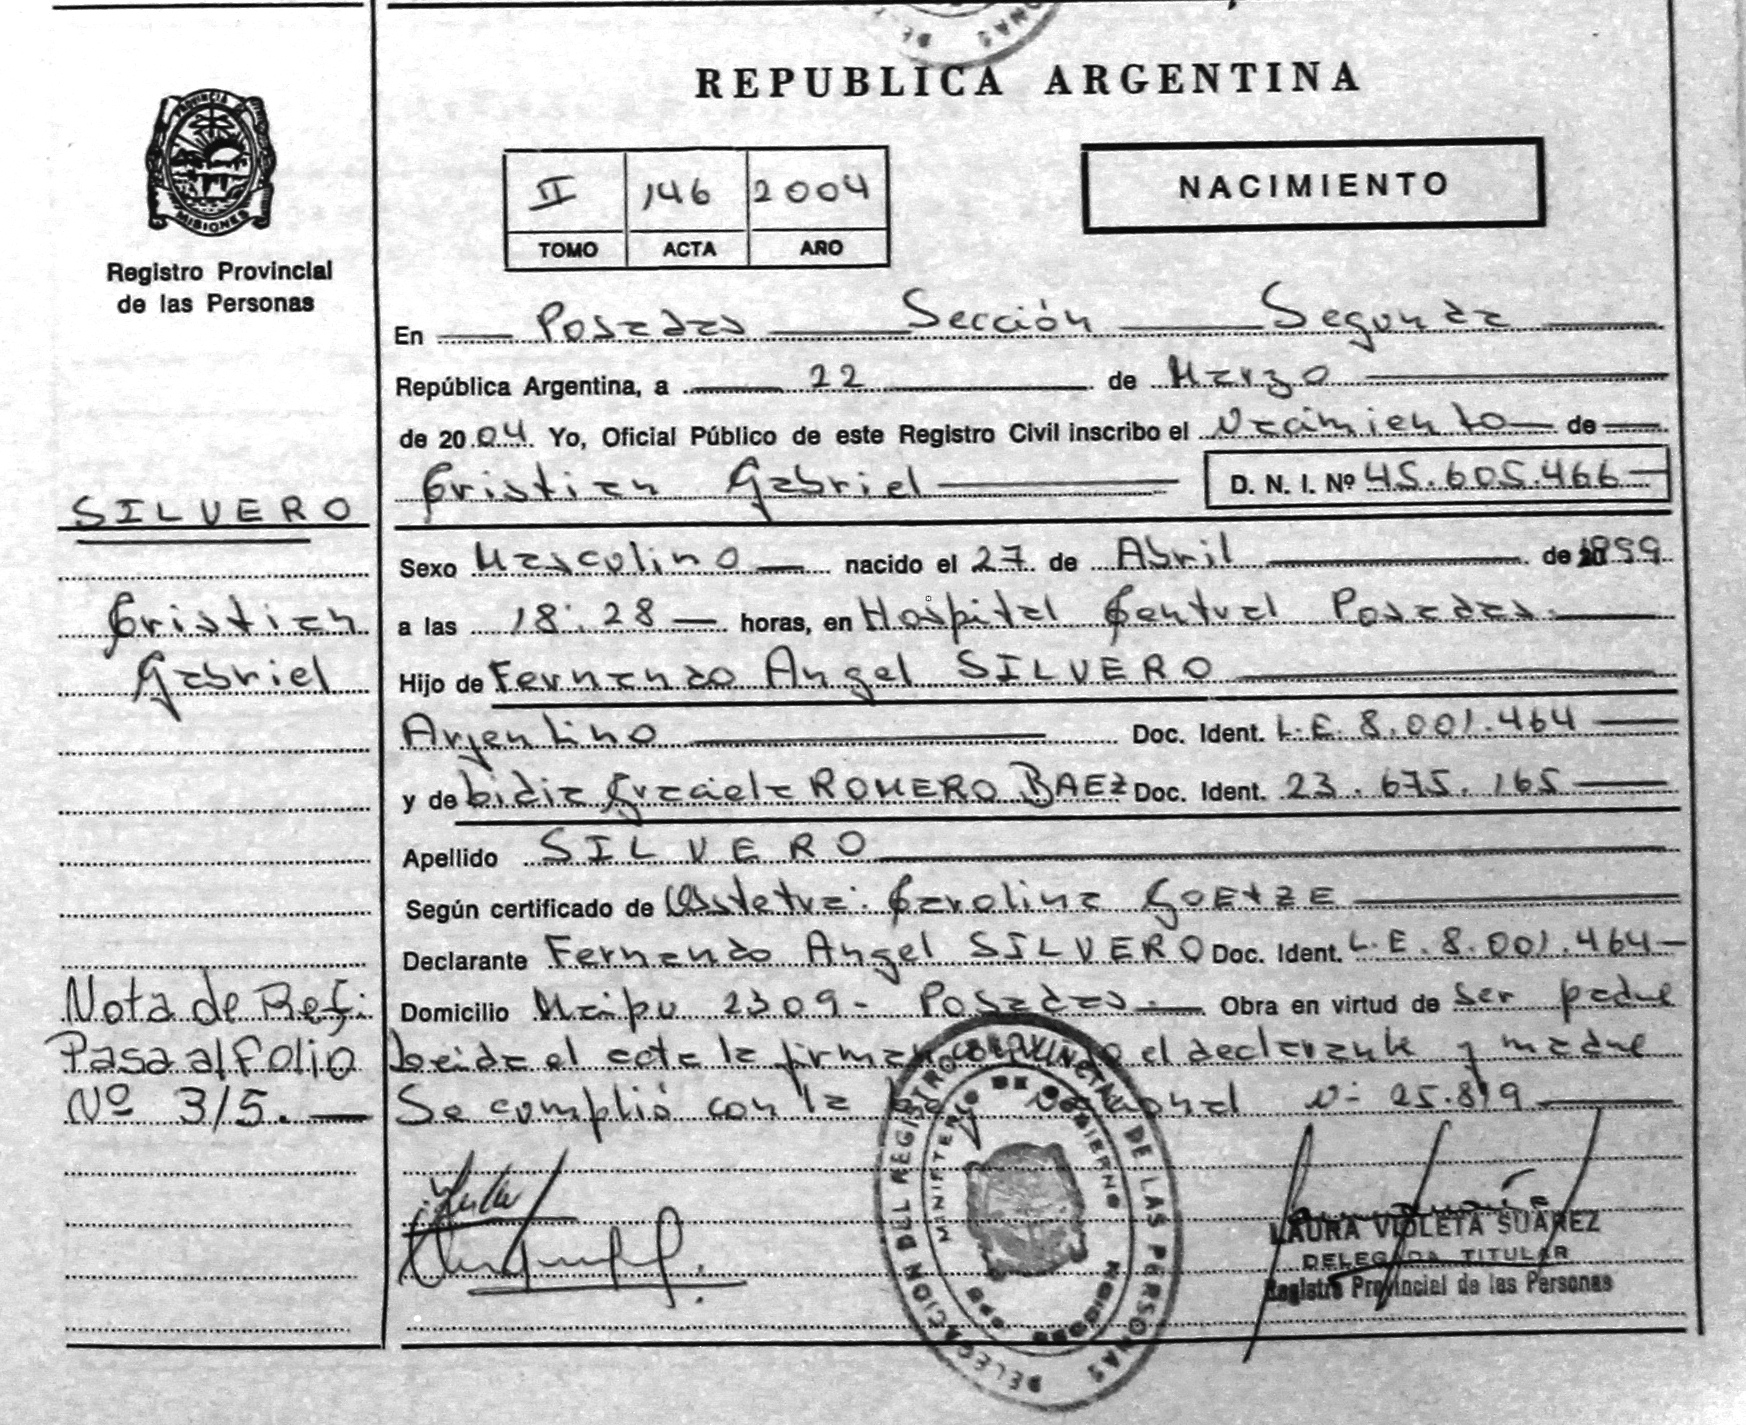 REPUBLICA ARGENTINA
PROVINCIA DE
MISIONES
Registro Provincial
de las Personas
II 146 2004
TOMO ACTA AÑO
NACIMIENTO
En Posadas Sección Segunda
República Argentina, a 22 de Marzo
de 2004 Yo, Oficial Público de este Registro Civil inscribo el Nacimiento de
Cristian Gabriel D. N. I. Nº 45.605.466
SILVERO
Sexo Masculino nacido el 27 de Abril de 1999
Cristian
a las 18:28 horas, en Hospital Central Posadas.
Gabriel
Hijo de Fernando Angel SILVERO
Argentino Doc. Ident. L.E. 8.001.464
y de Lidia Graciela ROMERO BAEZ Doc. Ident. 23.675.165
Apellido SILVERO
Según certificado de Obstetra: Carolina GOETZE
Declarante Fernando Angel SILVERO Doc. Ident. L.E. 8.001.464
Domicilio Maipu 2309 - Posadas. Obra en virtud de ser padre
Leida el acta la firman el declarante y madre
Se cumplió con la Ley Nacional Nº 25.819
Nota de Ref.
Pasa al Folio
Nº 315.
DELEGACION DEL REGISTRO PROVINCIAL DE LAS PERSONAS
MINISTERIO DE GOBIERNO
LAURA VIOLETA SUAREZ
DELEGADA TITULAR
Registro Provincial de las Personas